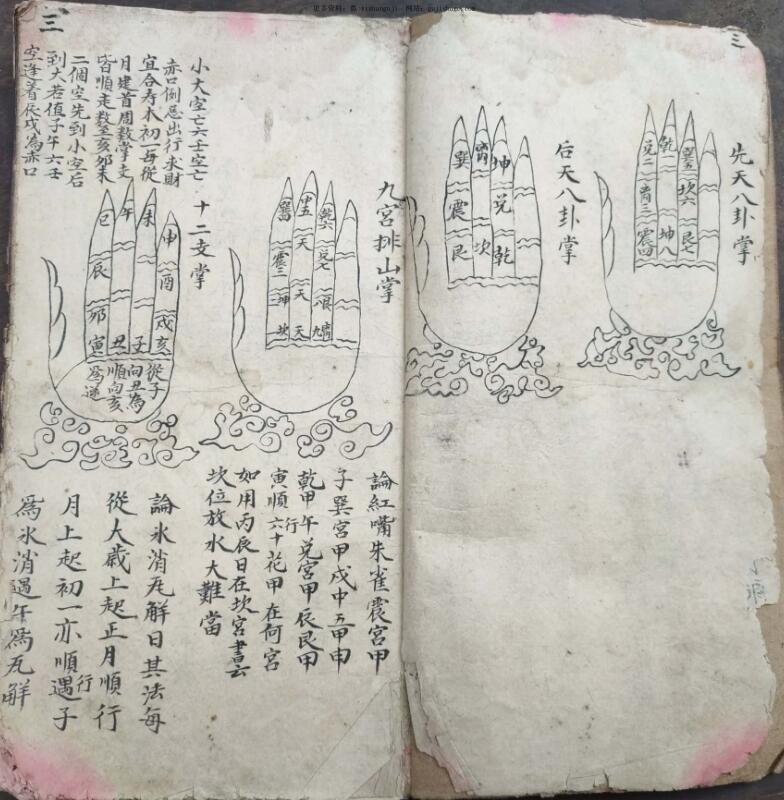 三
先天八卦掌
兑二
离三
震四
乾一
坤八
巽五
坎六
艮七
后天八卦掌
巽
震
艮
离
坎
坤
兑
乾
三
九宫排山掌
巽四
震三
坤二
坎
中五
天
天
天
乾六
兑七
艮八
离九
論紅嘴朱雀震宫甲
子巽宫甲戌中五甲申
乾甲午兑宫甲辰艮甲
寅順行六十花甲在何宫
如用丙辰日在坎宫書云
坎位放水大難當
小大空亡六壬空亡
赤口例忌出行求財
宜合寿木初一每從
月建首周数掌支
皆順走数至亥夘未
二個空先到小空后
到大若值子午六壬
空逢着辰戌為赤口
十二支掌
巳
辰
夘
寅
午
丑
未
子
申
酉
戌
亥
從子
向丑為
順向亥
為逆
論氷消瓦解日其法每
從大歲上起正月順行
月上起初一亦順行遇子
爲氷消遇午爲瓦解